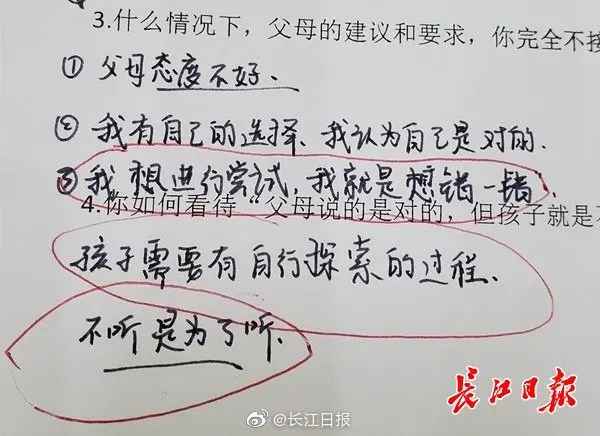 3.什么情况下，父母的建议和要求，你完全不接
① 父母态度不好、
② 我有自己的选择、我认为自己是对的.
③ 我想进行尝试，我就是想错一错.
4.你如何看待“父母说的是对的，但孩子就是不
孩子需要有自行探索的过程.
不听是为了听.
长江日报
@长江日报